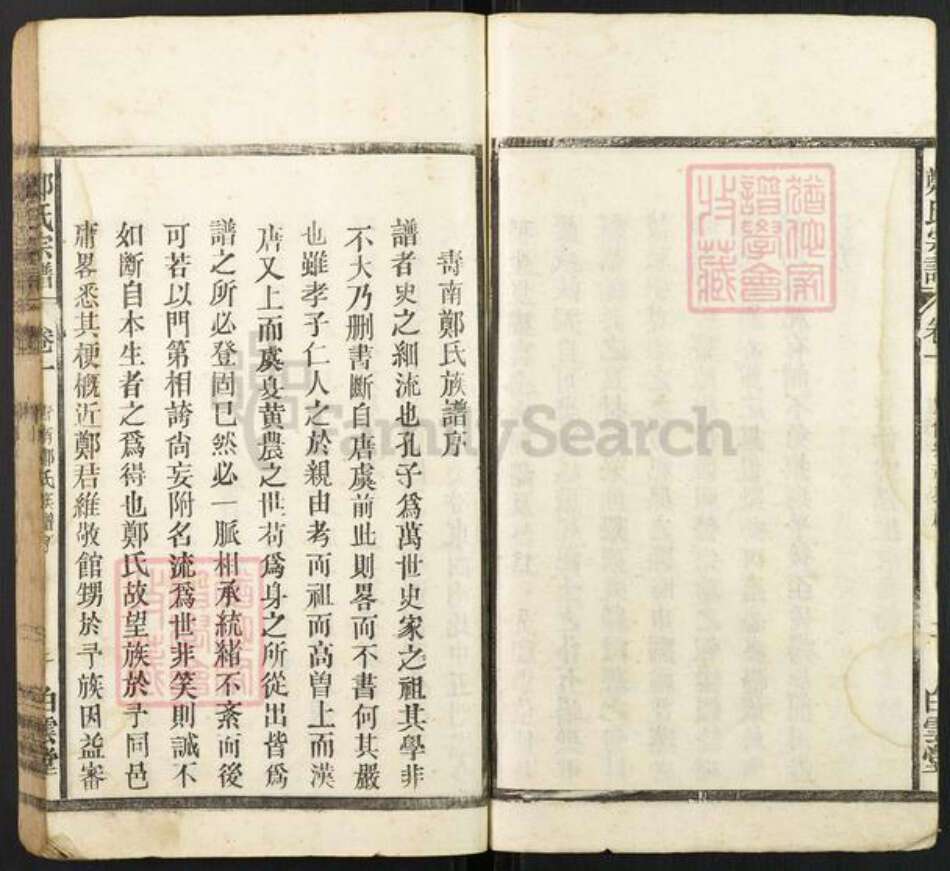 鄭氏宗譜
卷一
白雲堂
猶他家
譜學會
收藏
壽南鄭氏族譜序
譜者史之細流也孔子爲萬世史家之祖其學非
不大乃刪書斷自唐虞前此則畧而不書何其嚴
也雖孝子仁人之於親由考而祖而高曽上而漢
唐又上而虞夏黄農之世苟爲身之所從出皆爲
譜之所必登固已然必一脈相承統緒不紊而後
可若以門第相誇尙妄附名流爲世非笑則誠不
如斷自本生者之爲得也鄭氏故望族於予同邑
庸畧悉其梗概近鄭君維敬館甥於予族因益審
鄭氏宗譜
卷一
壽南鄭氏族譜序
一
白雲堂
猶他家
譜學會
收藏
FamilySearch